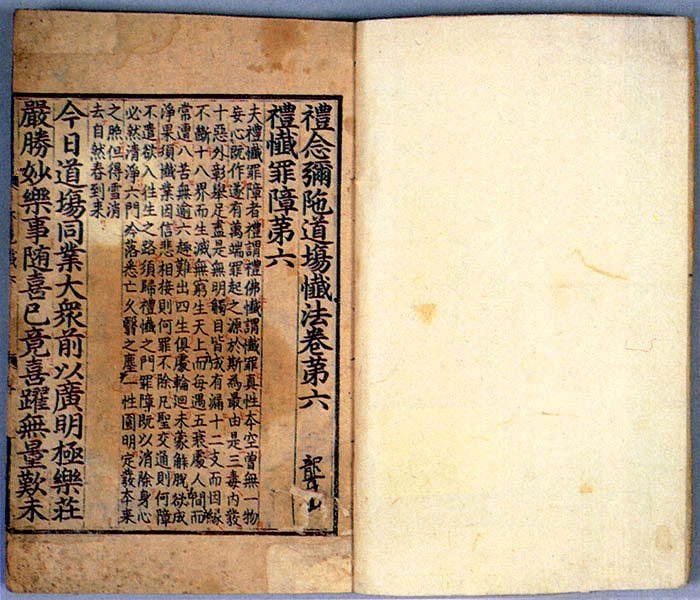 禮念彌陁道塲懺法卷第六
禮懺罪障第六
夫禮懺罪障者禮謂禮佛懺謂懺罪真性本空曾無一物
妄心既作遂有萬端罪起之源於斯為最由是三毒內發
十惡外彰舉足盡是無明觸目皆成有漏十二支而因緣
不斷十八界而生滅無窮生天上而每遇五衰處人間而
常遭八苦無逾六趣難出四生俱處輪迴未蒙解脫欲成
淨果須懺業因信悲相接則何罪不除凡聖交通則何障
不遣欲入徃生之路須歸禮懺之門罪障既以消除身心
必然清淨六門冷落忘久翳之塵一性圓明定發本来
之照但得雪消
去自然春到来
今日道塲同業大衆前以廣明極樂莊
嚴勝妙樂事随喜已竟喜躍無量歎未